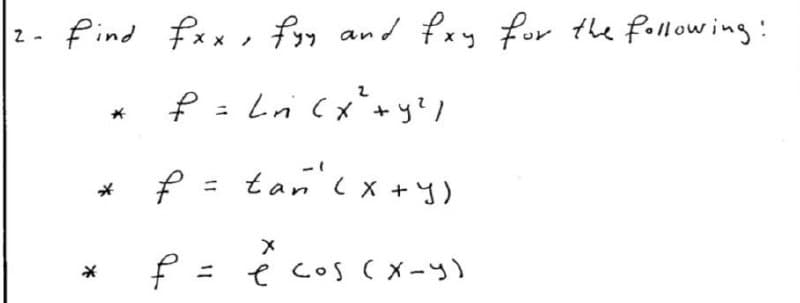 2- find fxx, fyy and fxy for the following:
* f = Ln (x²+y²)
* f = tan⁻¹(x+y)
* f = eˣ cos (x-y)